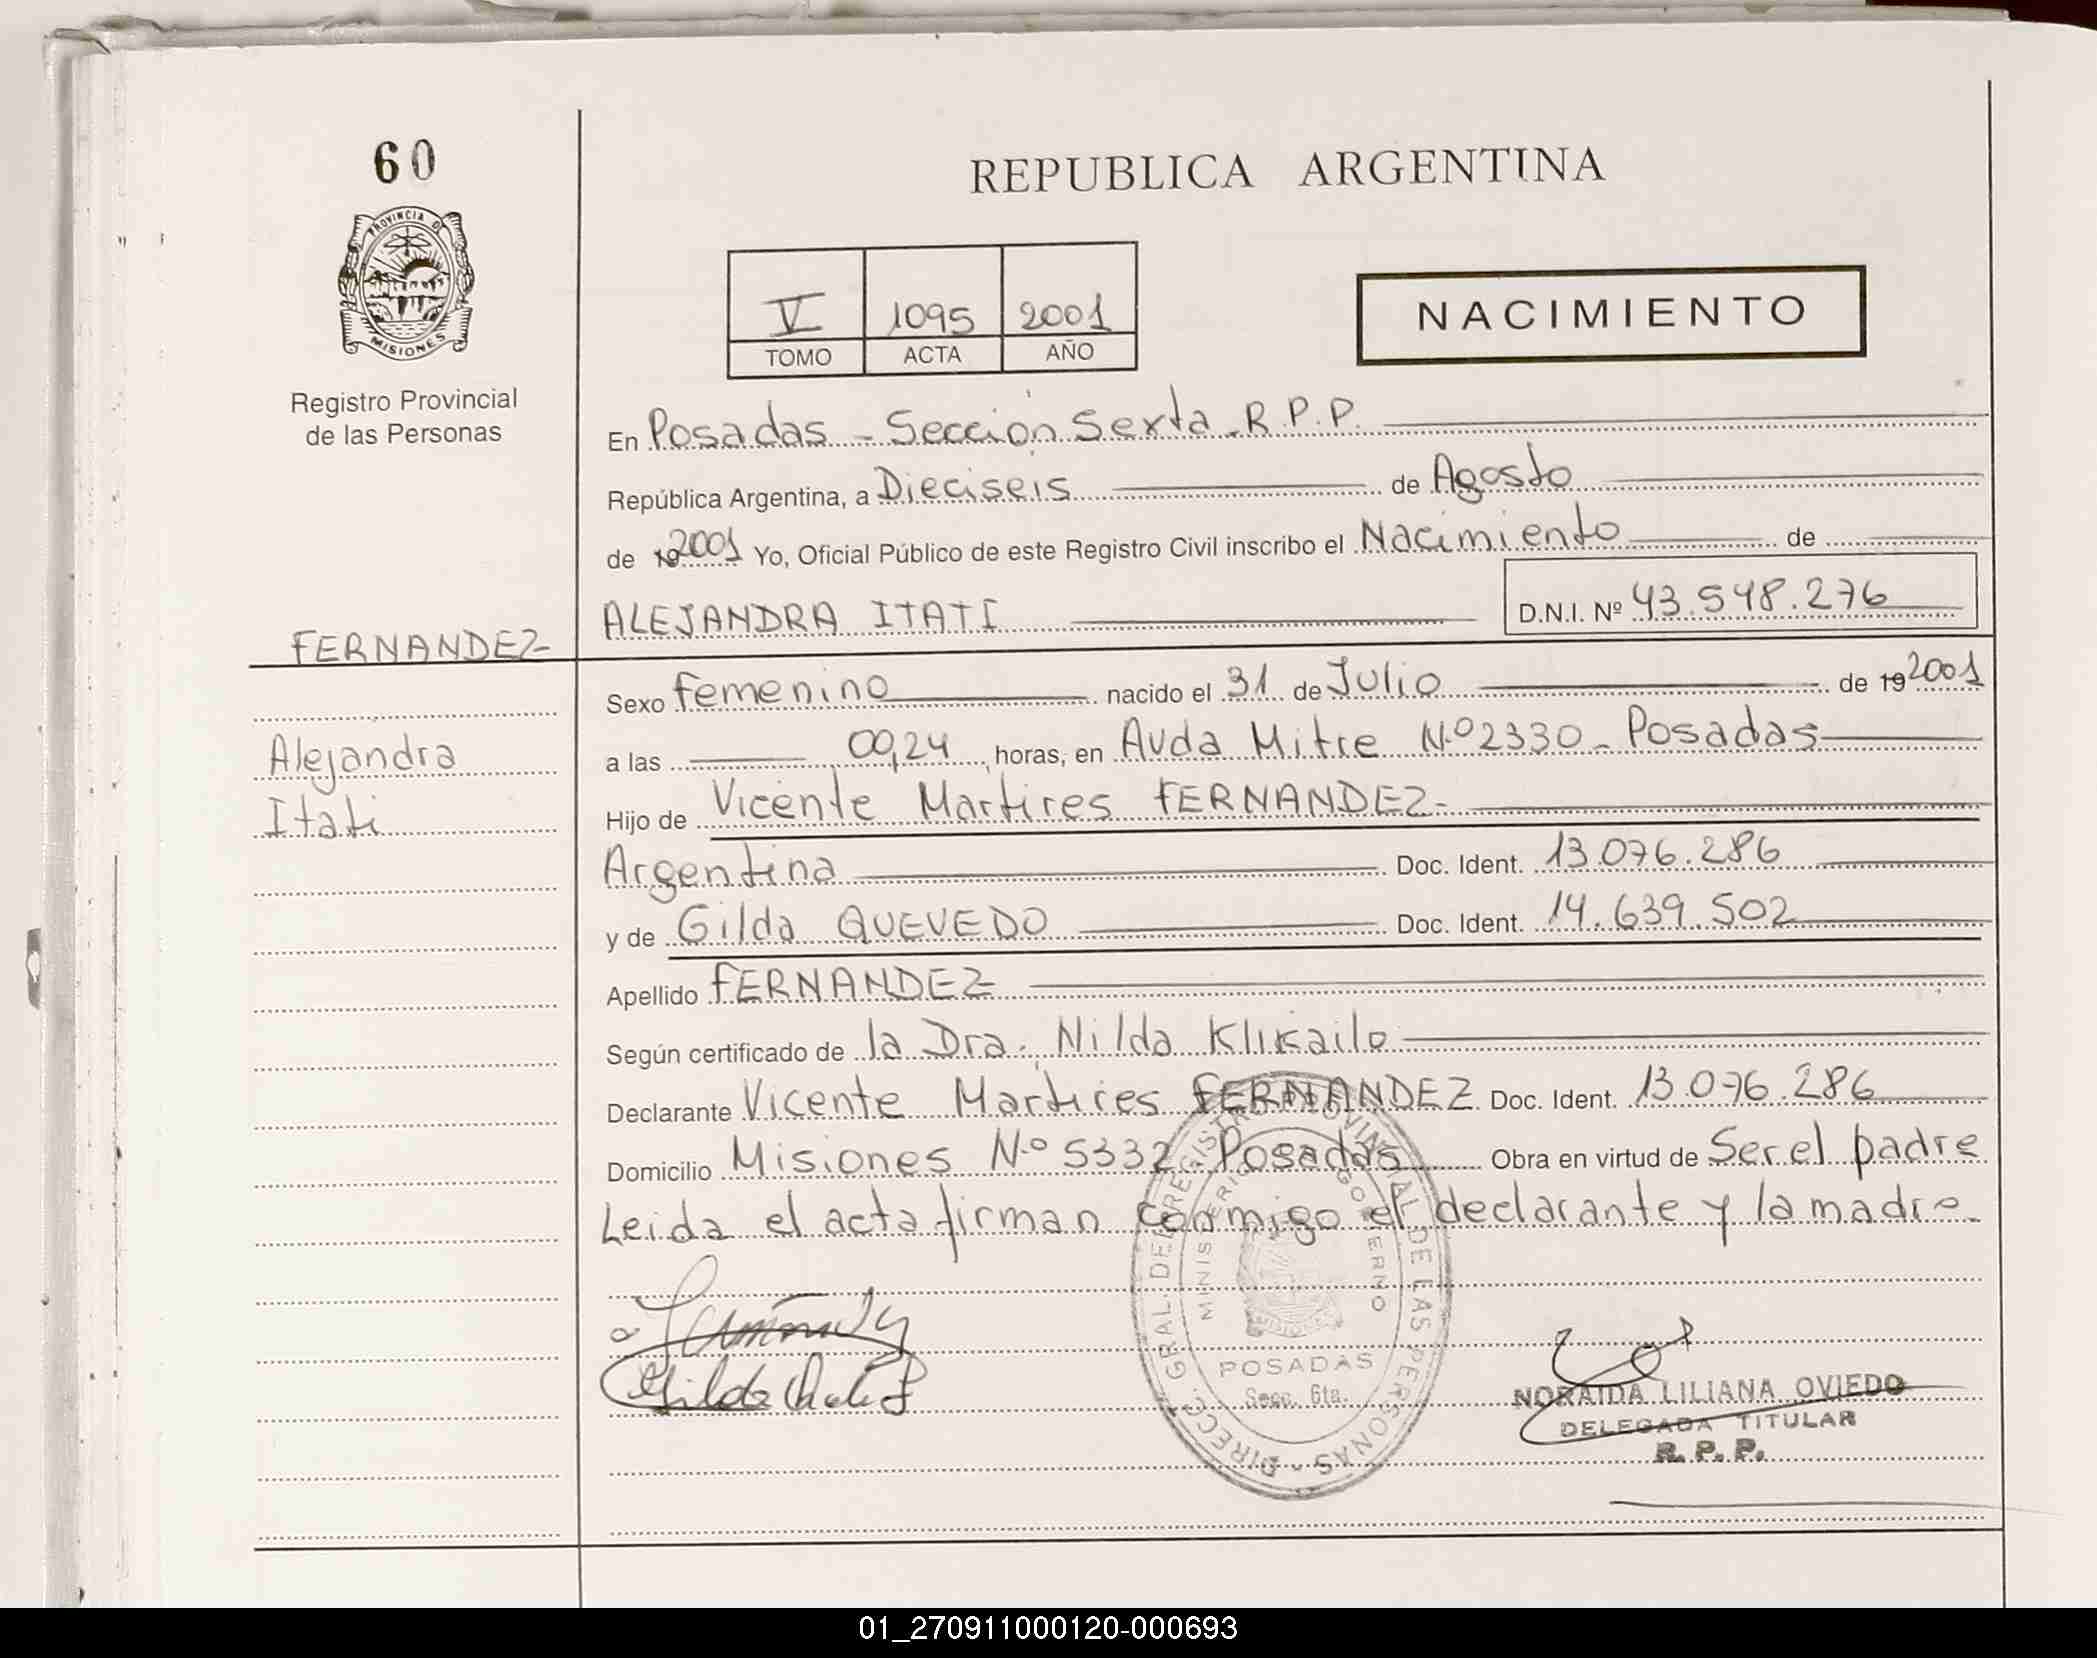 60
PROVINCIA D
MISIONES
Registro Provincial
de las Personas
REPUBLICA ARGENTINA
V 1095 2001
TOMO ACTA AÑO
NACIMIENTO
En Posadas - Sección Sexta - R.P.P.
República Argentina, a Dieciseis de Agosto
de 19 2001 Yo, Oficial Público de este Registro Civil inscribo el Nacimiento de
ALEJANDRA ITATI D.N.I. Nº 43.548.276
FERNANDEZ-
Sexo femenino nacido el 31 de Julio de 19 2001
Alejandra
Itati
a las 09,24 horas, en Avda Mitre Nº 2330 - Posadas
Hijo de Vicente Martires FERNANDEZ-
Argentina Doc. Ident. 13.076.286
y de Gilda QUEVEDO Doc. Ident. 14.639.502
Apellido FERNANDEZ
Según certificado de la Dra. Nilda Klikailo
Declarante Vicente Martires FERNANDEZ Doc. Ident. 13.076.286
Domicilio Misiones Nº 5332 - Posadas Obra en virtud de Ser el padre
Leida el acta firman conmigo el declarante y la madre-
DIRECC. GRAL. DEL REGISTRO PROVINCIAL DE LAS PERSONAS -
MINISTERIO GOBIERNO
POSADAS
Secc. 6ta.
NORAIDA LILIANA OVIEDO
DELEGADA TITULAR
R. P. P.
01_270911000120-000693